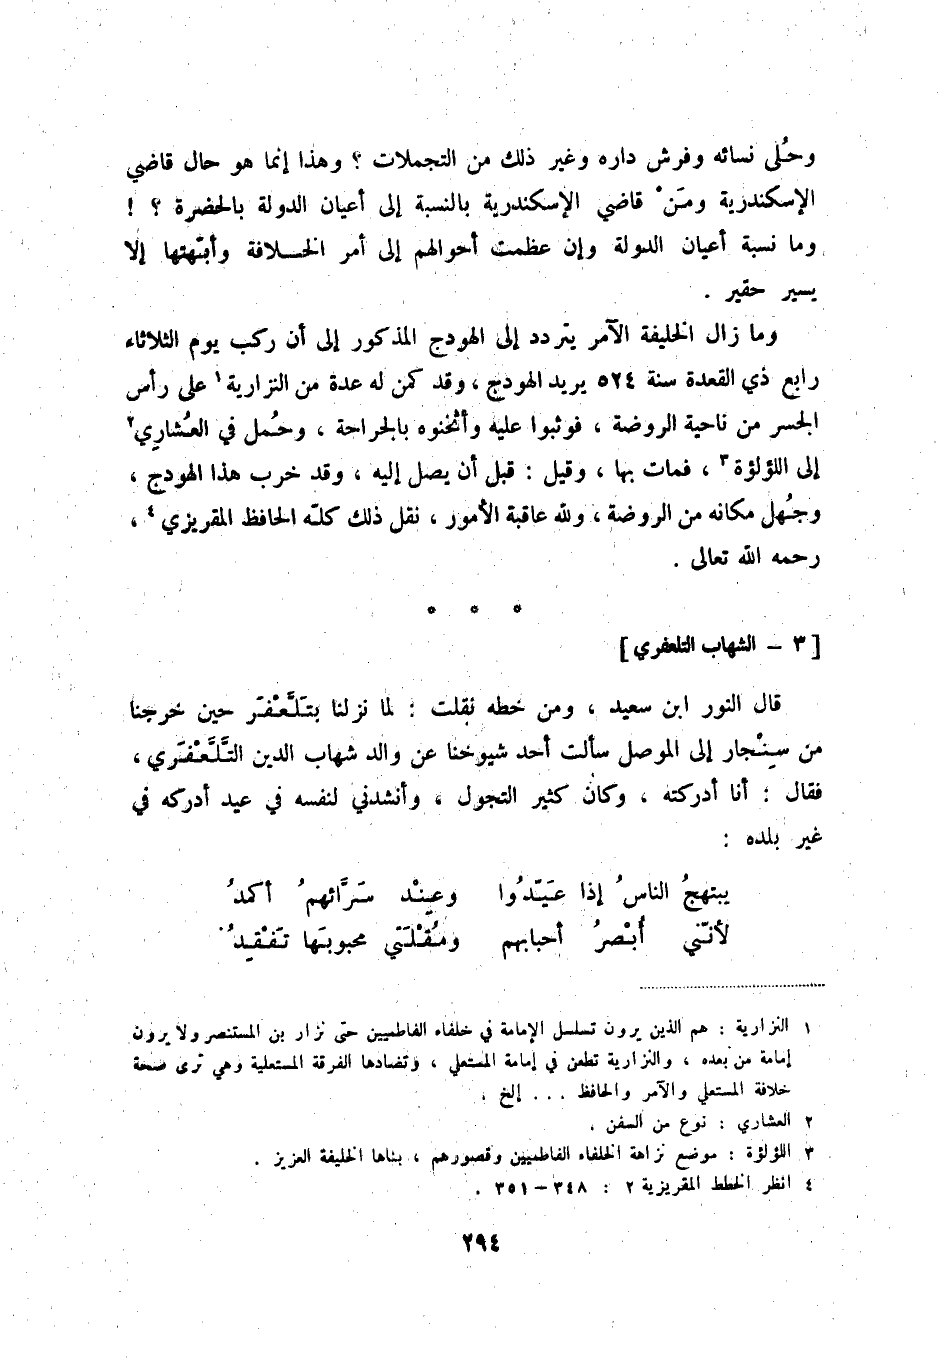 وحُلى نسائه وفرش داره وغير ذلك من التجملات ؟ وهذا إنما هو حال قاضي
الإسكندرية ومَنْ قاضي الإسكندرية بالنسبة إلى أعيان الدولة بالحضرة ؟ !
وما نسبة أعيان الدولة وإن عظمت أحوالهم إلى أمر الخلافة وأبّهتها إلا
يسير حقير .
وما زال الخليفة الآمر يتردد إلى الهودج المذكور إلى أن ركب يوم الثلاثاء
رابع ذي القعدة سنة ٥٢٤ يريد الهودج ، وقد كمن له عدة من النزارية١ على رأس
الجسر من ناحية الروضة ، فوثبوا عليه وأثخنوه بالجراحة ، وحُمل في العُشاري٢
إلى اللؤلؤة٣ ، فمات بها ، وقيل : قبل أن يصل إليه ، وقد خرب هذا الهودج ،
وجُهل مكانه من الروضة ، ولله عاقبة الأمور ، نقل ذلك كلّه الحافظ المقريزي٤ ،
رحمه الله تعالى .
* * *
[ ٣ – الشهاب التلعفري ]
قال النور ابن سعيد ، ومن خطه نقلت : لما نزلنا بتَلَّعْفَر حين خرجنا
من سِنْجار إلى الموصل سألت أحد شيوخنا عن والد شهاب الدين التَّلَّعْفَري ،
فقال : أنا أدركته ، وكان كثير التجول ، وأنشدني لنفسه في عيد أدركه في
غير بلده :
يبتهجُ الناسُ إذا عَيّدُوا وعِنْد سَرَّائهمُ أكمدُ
لأنّني أُبْصرُ أحبابهم ومُقْلَتي محبوبَها تَفْقِدُ
١ النزارية : هم الذين يرون تسلسل الإمامة في خلفاء الفاطميين حتى نزار بن المستنصر ولا يرون
إمامة من بعده ، والنزارية تطعن في إمامة المستعلي ، وتضادها الفرقة المستعلية وهي ترى صحة
خلافة المستعلي والآمر والحافظ ... إلخ .
٢ العشاري : نوع من السفن .
٣ اللؤلؤة : موضع نزاهة الخلفاء الفاطميين وقصورهم ، بناها الخليفة العزيز .
٤ انظر الخطط المقريزية ٢ : ٣٤٨–٣٥١ .
٢٩٤